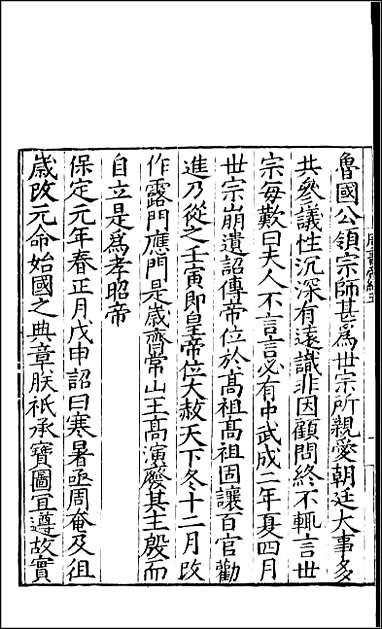 魯國公領宗師甚爲世宗所親愛朝廷大事多
共參議性沉深有遠識非因顧問終不輒言世
宗每歎曰夫人不言言必有中武成二年夏四月
世宗崩遺詔傳帝位於髙祖髙祖固讓百官勸
進乃從之壬寅即皇帝位大赦天下冬十二月改
作露門應門是歲齊常山王髙演廢其主殷而
自立是爲孝昭帝
保定元年春正月戊申詔曰寒暑亟周奄及徂
歲改元命始國之典章朕祇承寶圖宜遵故實